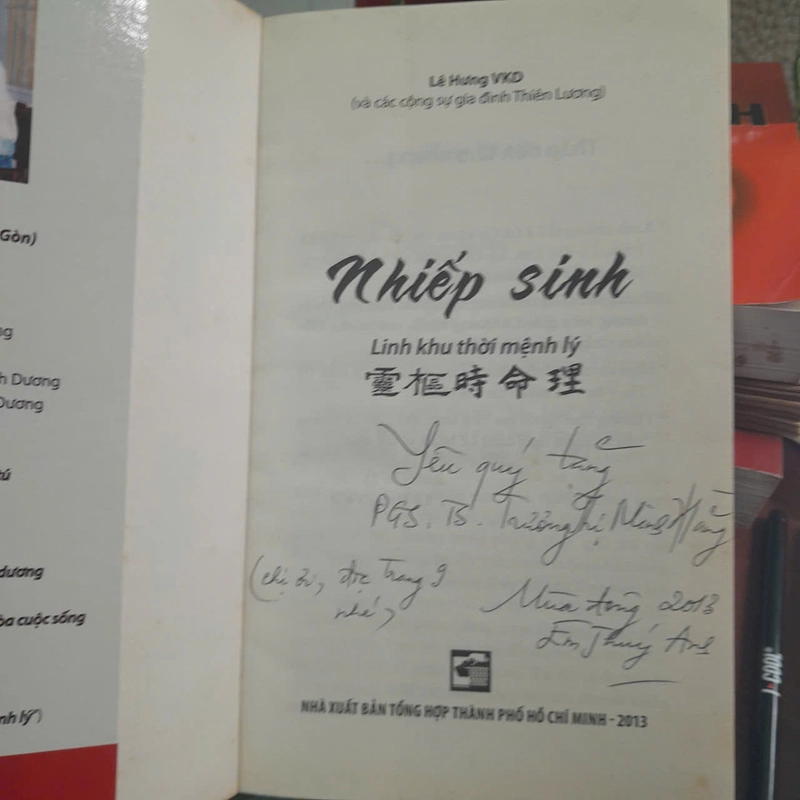 Gòn)
h Dương
Dương
tú
dương
òa cuộc sống
nh lý")
Lê Hưng VKD
(và các cộng sự gia đình Thiên Lương)
Nhiếp sinh
Linh khu thời mệnh lý
靈樞時命理
Yêu quý tặng
PGS. TS. Trương Thị Minh Hằng
(chị ơi, đọc Trang 9
nhé)
Mùa đông 2013
Em Thuý Anh
NHÀ XUẤT BẢN TỔNG HỢP THÀNH PHỐ HỒ CHÍ MINH - 2013